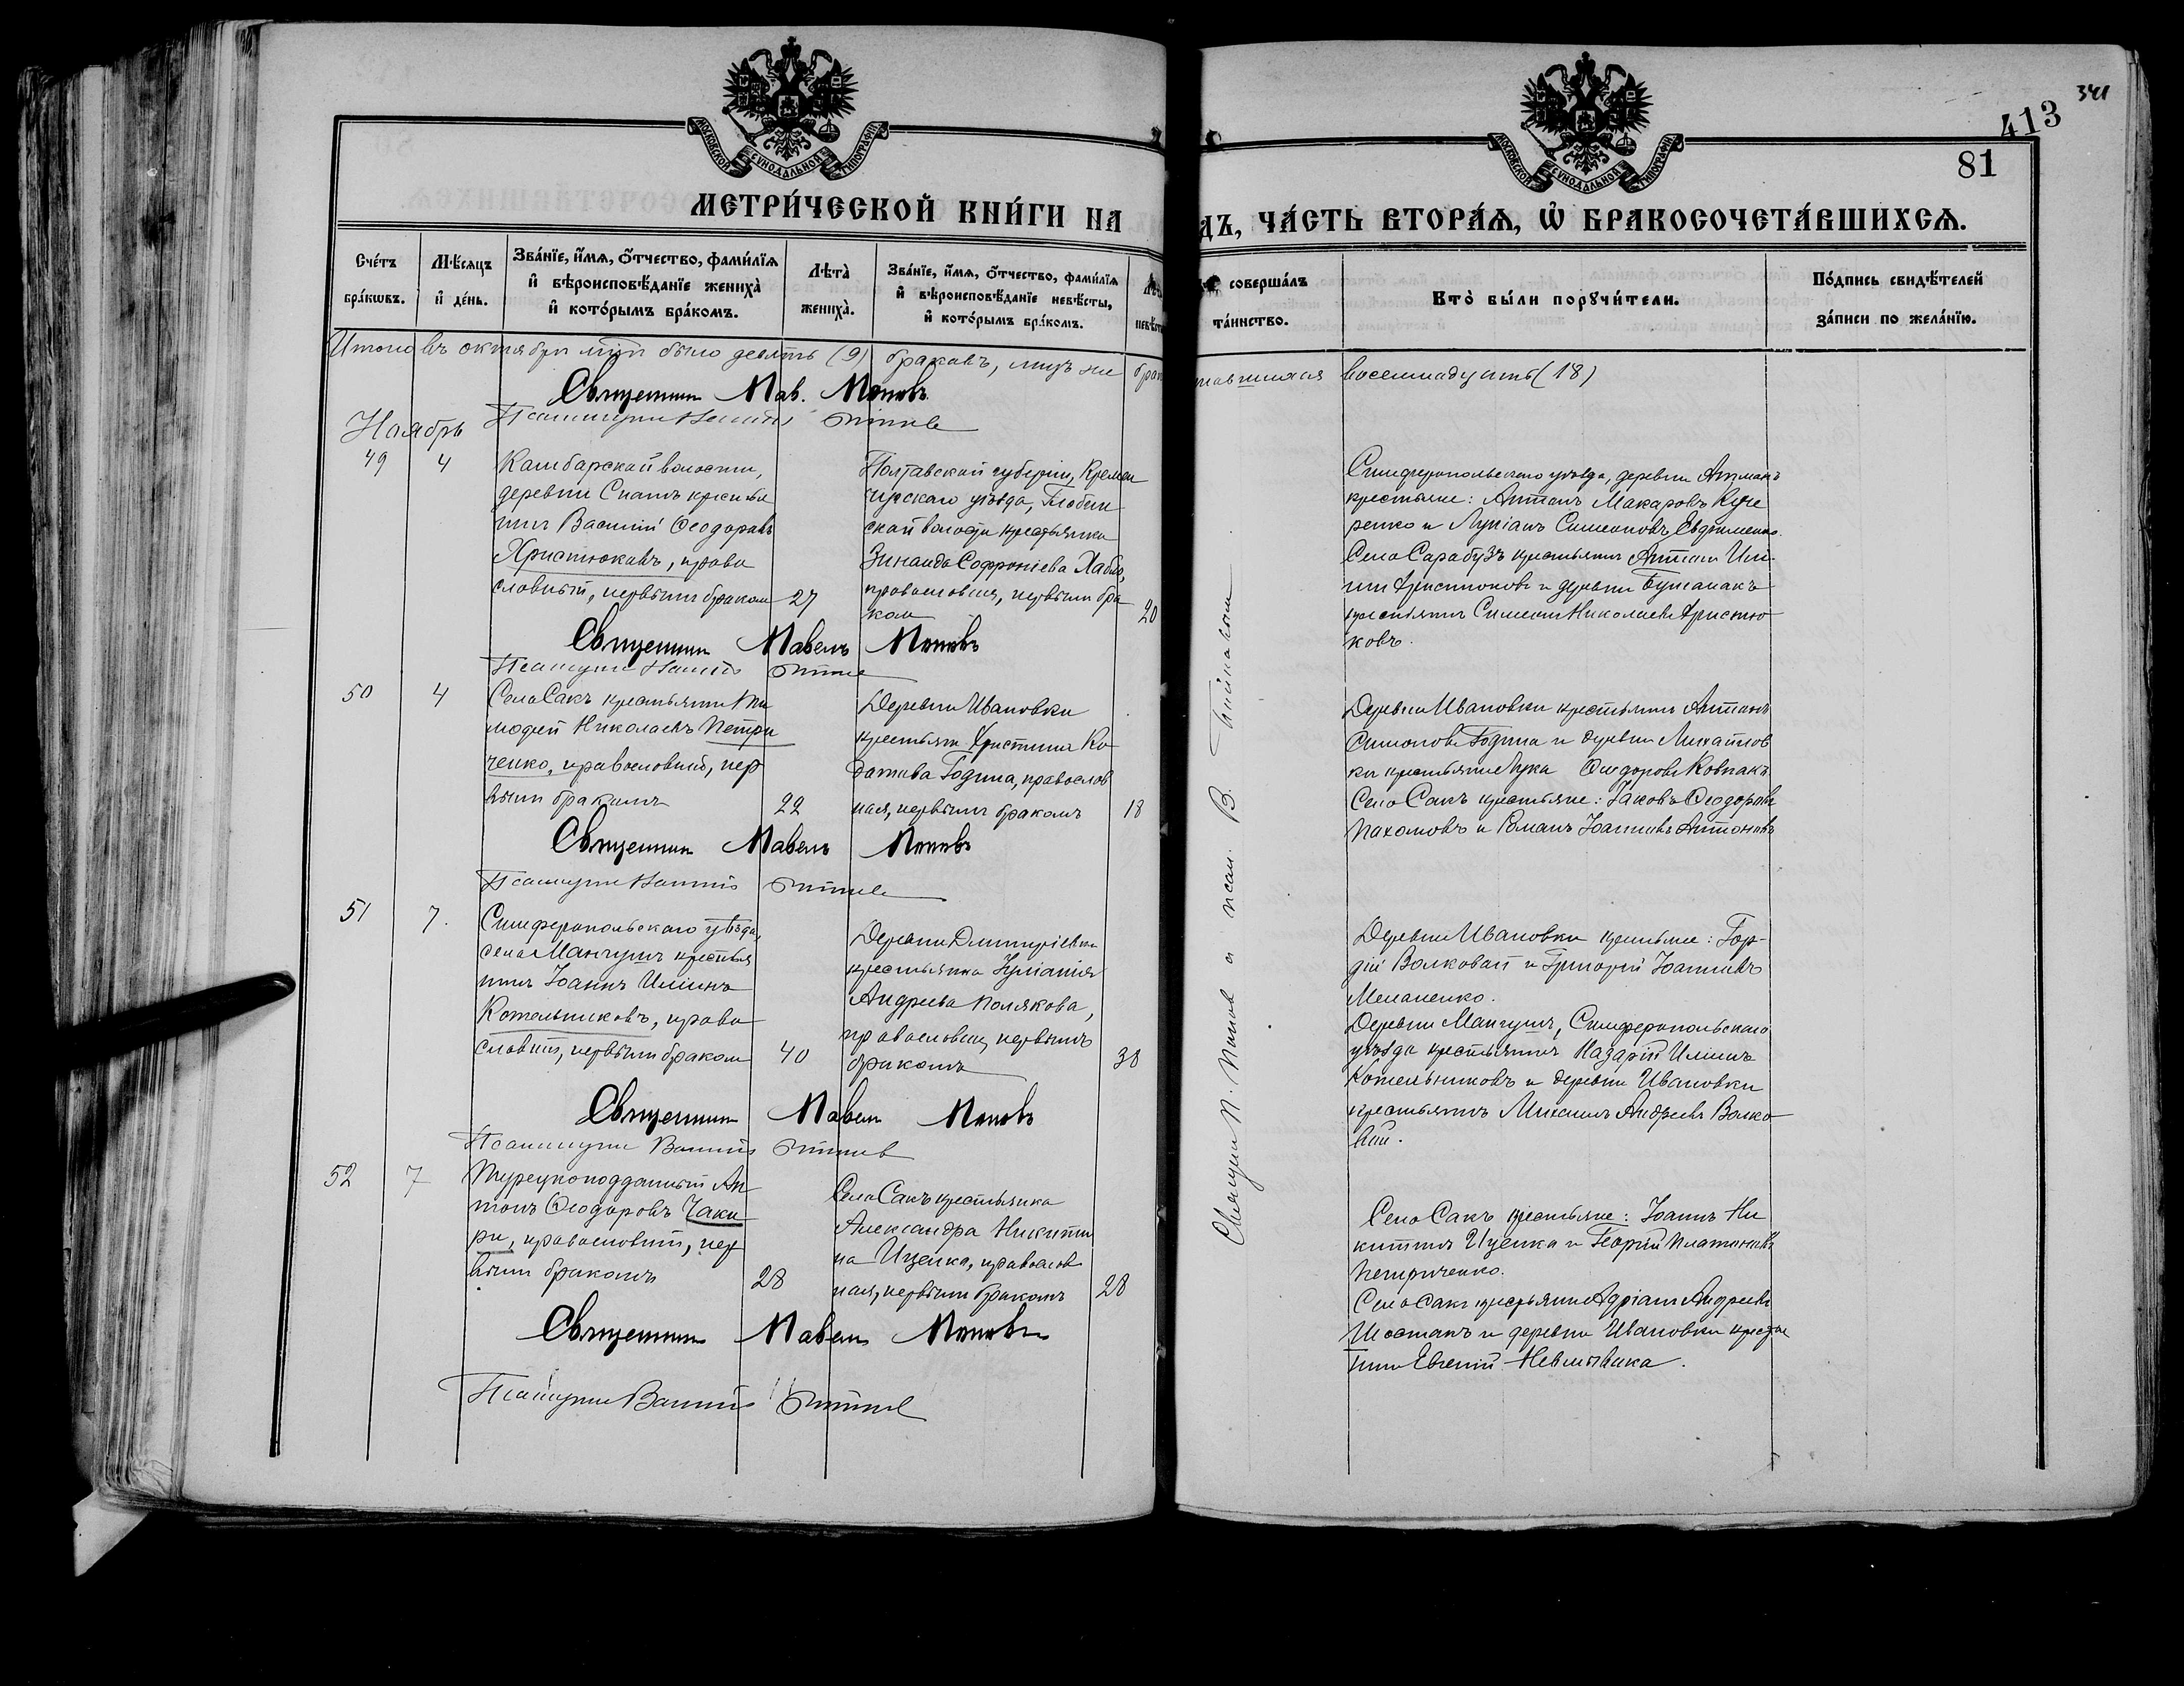 341
413
81
МОСКОВСКОЙ СѴНОДАЛЬНОЙ ТИПОГРАФІИ
МОСКОВСКОЙ СѴНОДАЛЬНОЙ ТИПОГРАФІИ
МЕТРИ́ЧЕСКОЙ КНИ́ГИ НА
ДЪ, ЧА́СТЬ ВТОРА́Ѧ, Ѡ҆ БРАКОСОЧЕТА́ВШИХСѦ.
Сче́тъ бра́кѡвъ.
Мѣ́сяцъ и҆ де́нь.
Зва́нїе, и҆́мѧ, ѻ҆́тчество, фами́лїѧ и҆ вѣроисповѣ́данїе жениха̀ и҆ кото́рымъ бра́комъ.
Лѣта̀ жениха̀.
Зва́нїе, и҆́мѧ, ѻ҆́тчество, фами́лїѧ и҆ вѣроисповѣ́данїе невѣ́сты, и҆ кото́рымъ бра́комъ.
совершáлъ та́инство.
Кто̀ бы́ли порꙋчи́тели.
По́дпись свидѣ́телей за́писи по жела́нїю.
Итого въ октябрѣ м-цѣ было девять (9) браковъ, лицъ же
восемнадцать (18)
Священникъ Пав. Поповъ
Ноябрь
49
4
Камбарской волости,
деревни Спатъ крестья
нинъ Василій Ѳеодоровъ
Христюковъ, право
славный, первымъ бракомъ
27
Полтавской губерніи, Кремен
чугскаго уѣзда, Глобин
ской волости крестьянка
Зинаида Софроніева Хабло,
православная, первымъ бра
комъ
20
Симферопольскаго уѣзда, деревни Атманъ
крестьяне: Антонъ Макаровъ Куче
ренко и Лукіанъ Симеоновъ Евдоменко.
Села Сарабузъ крестьянинъ Антонъ Или-
инъ Христюковъ и деревни Бурманакъ
крестьянинъ Симеонъ Николаевъ Христю
ковъ.
Священникъ Павелъ Поповъ
50
4
Села Сакъ крестьянинъ Ти
моѳей Николаевъ Петри
ченко, православный, пер
вымъ бракомъ
22
Деревни Ивановки
крестьян. Христина Ко
дратова Година, православ
ная, первымъ бракомъ
18
Деревни Ивановки крестьянинъ Антонъ
Симоновъ Година и деревни Михайлов
ки крестьянинъ Лука Ѳеодоровъ Ковпакъ
Села Сакъ крестьяне: Іаковъ Ѳеодоровъ
Пахомовъ и Романъ Іоанновъ Антоновъ
Священникъ Павелъ Поповъ
51
7.
Симферопольскаго уѣзда,
села Мангушъ крестья
нинъ Іоаннъ Иліинъ
Котельниковъ, право
славный, первымъ бракомъ
40
Деревни Димитріевки
крестьянка Іуліанія
Андреева Полякова,
православная, первымъ
бракомъ
38
Деревни Ивановки крестьяне: Гор-
дій Волковай и Григорій Іоанновъ
Меланенко.
Деревни Мангушъ, Симферопольскаго
уѣзда крестьянинъ Назарій Иліинъ
Котельниковъ и деревни Ивановки
крестьянинъ Михаилъ Андреевъ Волко
вай.
Священникъ Павелъ Поповъ
52
7
Турецкоподданный Ан
тонъ Ѳеодоровъ Чаки
ри, православный, пер
вымъ бракомъ
28
Села Сакъ крестьянка
Александра Никити
на Ищенко, православ
ная, первымъ бракомъ
28
Села Сакъ крестьяне: Іоаннъ Ни
китинъ Ищенко и Георгій Платоновъ
Петриченко.
Села Сакъ крестьянинъ Адріанъ Андреевъ
Шостакъ и деревни Ивановки крестья
нинъ Евгеній Невмывака.
Священникъ Павелъ Поповъ